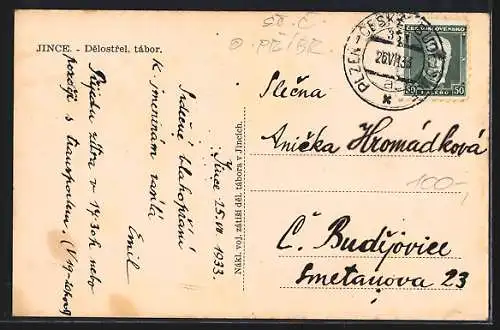 JINCE. - Dělostřel. tábor.
St. Č.
PŘÍBR.
PLZEŇ-ČESKÉ
26.VII.33
ČESKOSLOVENSKO
50 HALÉŘŮ 50
Jince 25.VII 1933.
Srdečné blahopřání
k jmeninám zasílá
Emil
Přijedu zítra v 17.30h nebo
později s transportem.
Nákl. voj. zátiší děl. tábora v Jincích.
Slečna
Anička Hromádková
100,-
Č. Budějovice
Smetanova 23